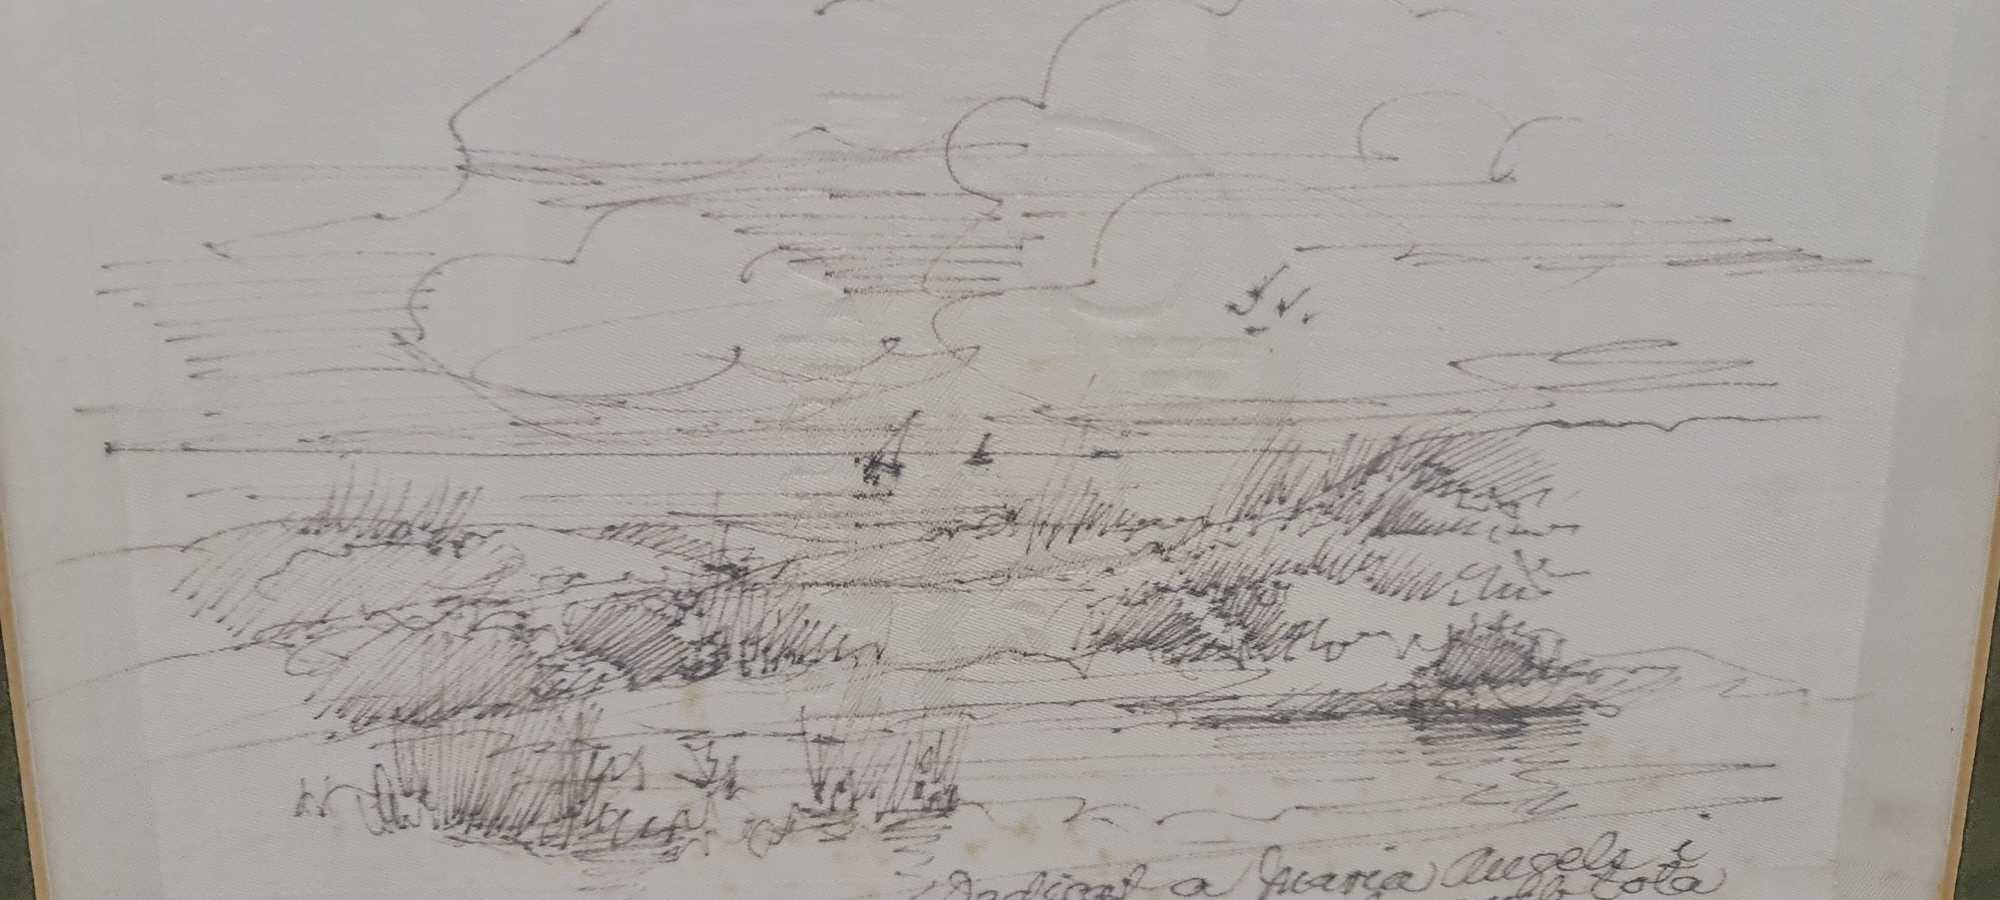 Dedicat a Maria Angels i
amb tota